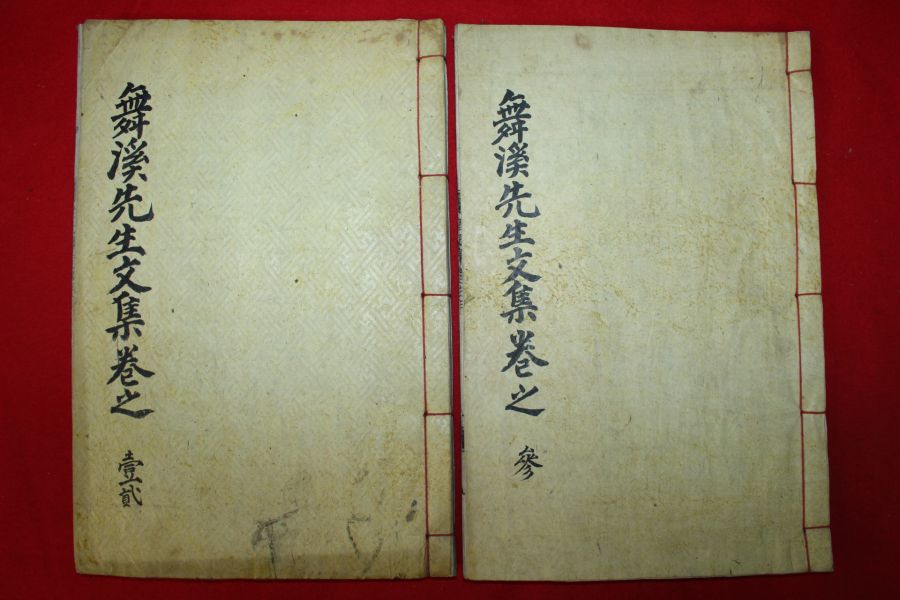 舞溪先生文集卷之 壹貳
舞溪先生文集卷之 參